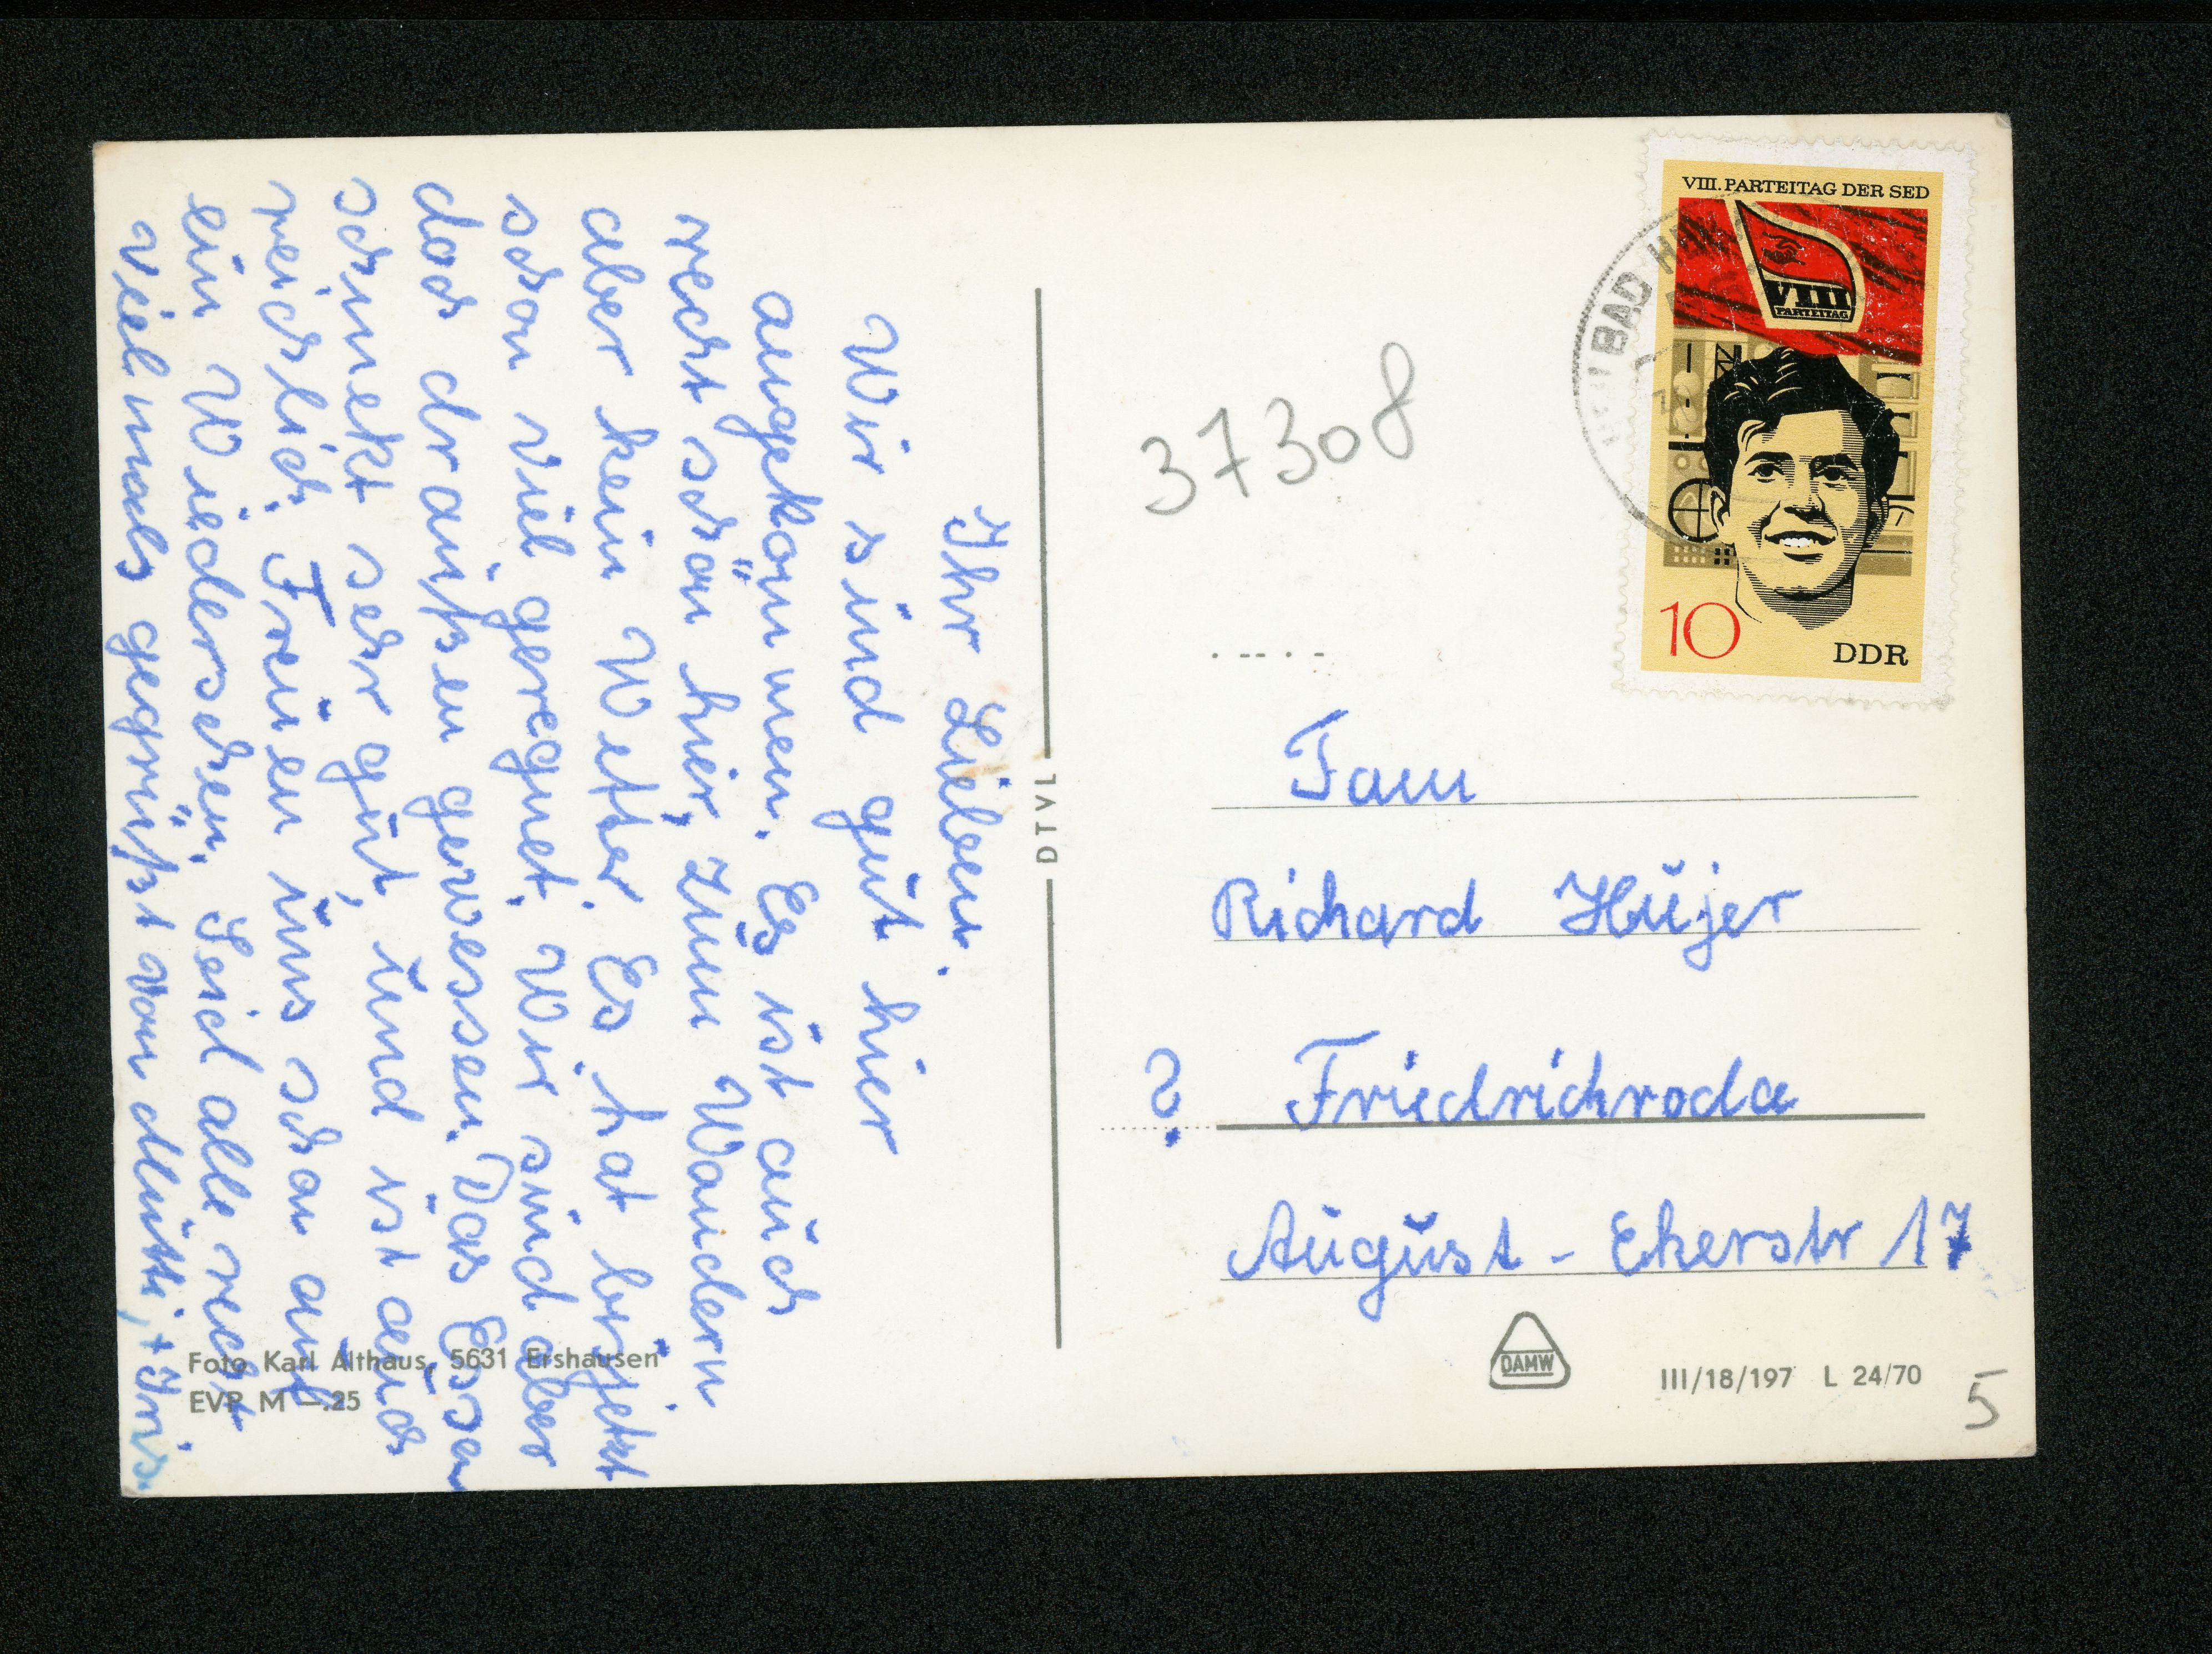 Ihr Lieben.
Wir sind gut hier
angekommen. Es ist auch
recht schön hier, zum Wandern
aber kein Wetter. Es hat bisjetzt
schon viel geregnet. Wir sind aber
doch draußen gewessen. Das Essen
schmekt sehr gut, und ist auch
reichlich. Freuen uns schon auf
ein Wiedersehen. Seid alle recht
vielmals gegrüßt von Mutti, + Iris
Foto Karl Althaus, 5631 Ershausen
EVP M —.25
DTVL
37308
VIII. PARTEITAG DER SED
VIII
PARTEITAG
10
DDR
BAD
Fam
Richard Hujer
? Friedrichroda
August - Ekerstr 17
DAMW
III/18/197 L 24/70
5